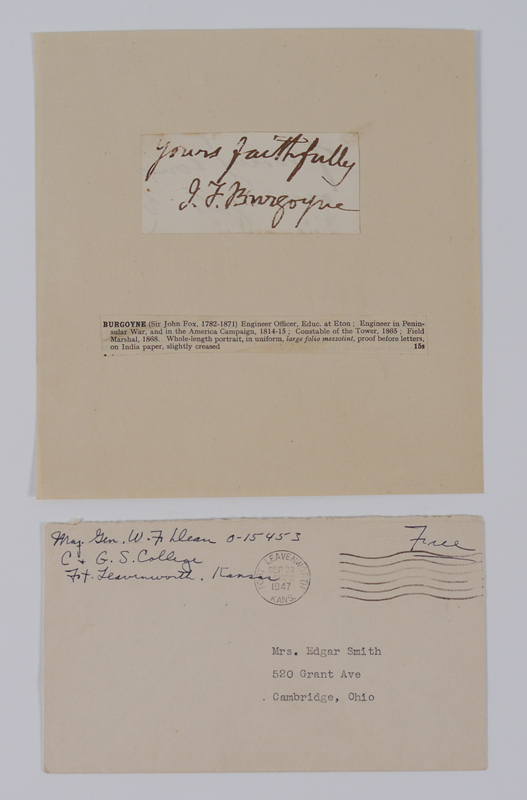 yours faithfully
J. F. Burgoyne
BURGOYNE (Sir John Fox, 1782-1871) Engineer Officer, Educ. at Eton ; Engineer in Penin-
sular War, and in the America Campaign, 1814-15 ; Constable of the Tower, 1865 ; Field
Marshal, 1868. Whole-length portrait, in uniform, large folio mezzotint, proof before letters,
on India paper, slightly creased 15s
Maj. Gen. W. F. Dean 0-15453
C & G. S. College
Ft. Leavenworth. Kansas
Free
FORT LEAVENWORTH
SEP 23
1947
KANS.
Mrs. Edgar Smith
520 Grant Ave
Cambridge, Ohio